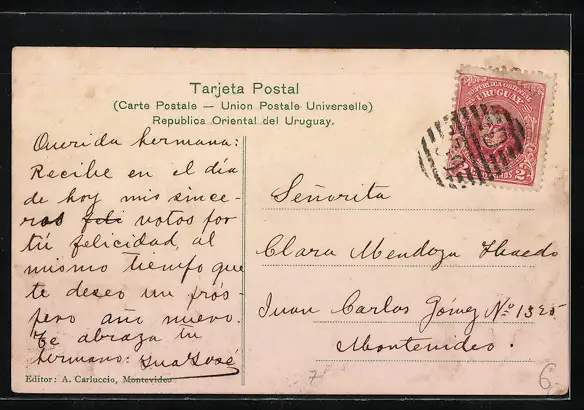 Tarjeta Postal
(Carte Postale — Union Postale Universelle)
Republica Oriental del Uruguay.
Querida hermana:
Recibe en el día
de hoy mis since-
ros votos por
tú felicidad, al
mismo tiempo que
te deseo un prós-
pero año nuevo.
Te abraza tu
hermano: José
Editor: A. Carluccio, Montevideo
REPUBLICA ORIENTAL
URUGUAY
2
Señorita
Clara Mendoza
Juan Carlos Gómez Nº 1325
Montevideo.
7
6